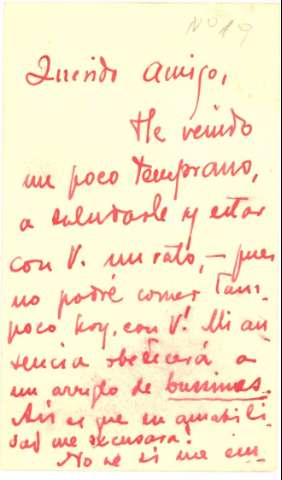 Nº 19
Querido amigo,
He venido
un poco temprano,
a saludarle y estar
con V. un rato, – pues
no podré comer tam-
poco hoy, con V. Mi au
sencia obedecerá a
un arreglo de bussines.
Así es que su amabili
dad me excusará.
No se si me em-